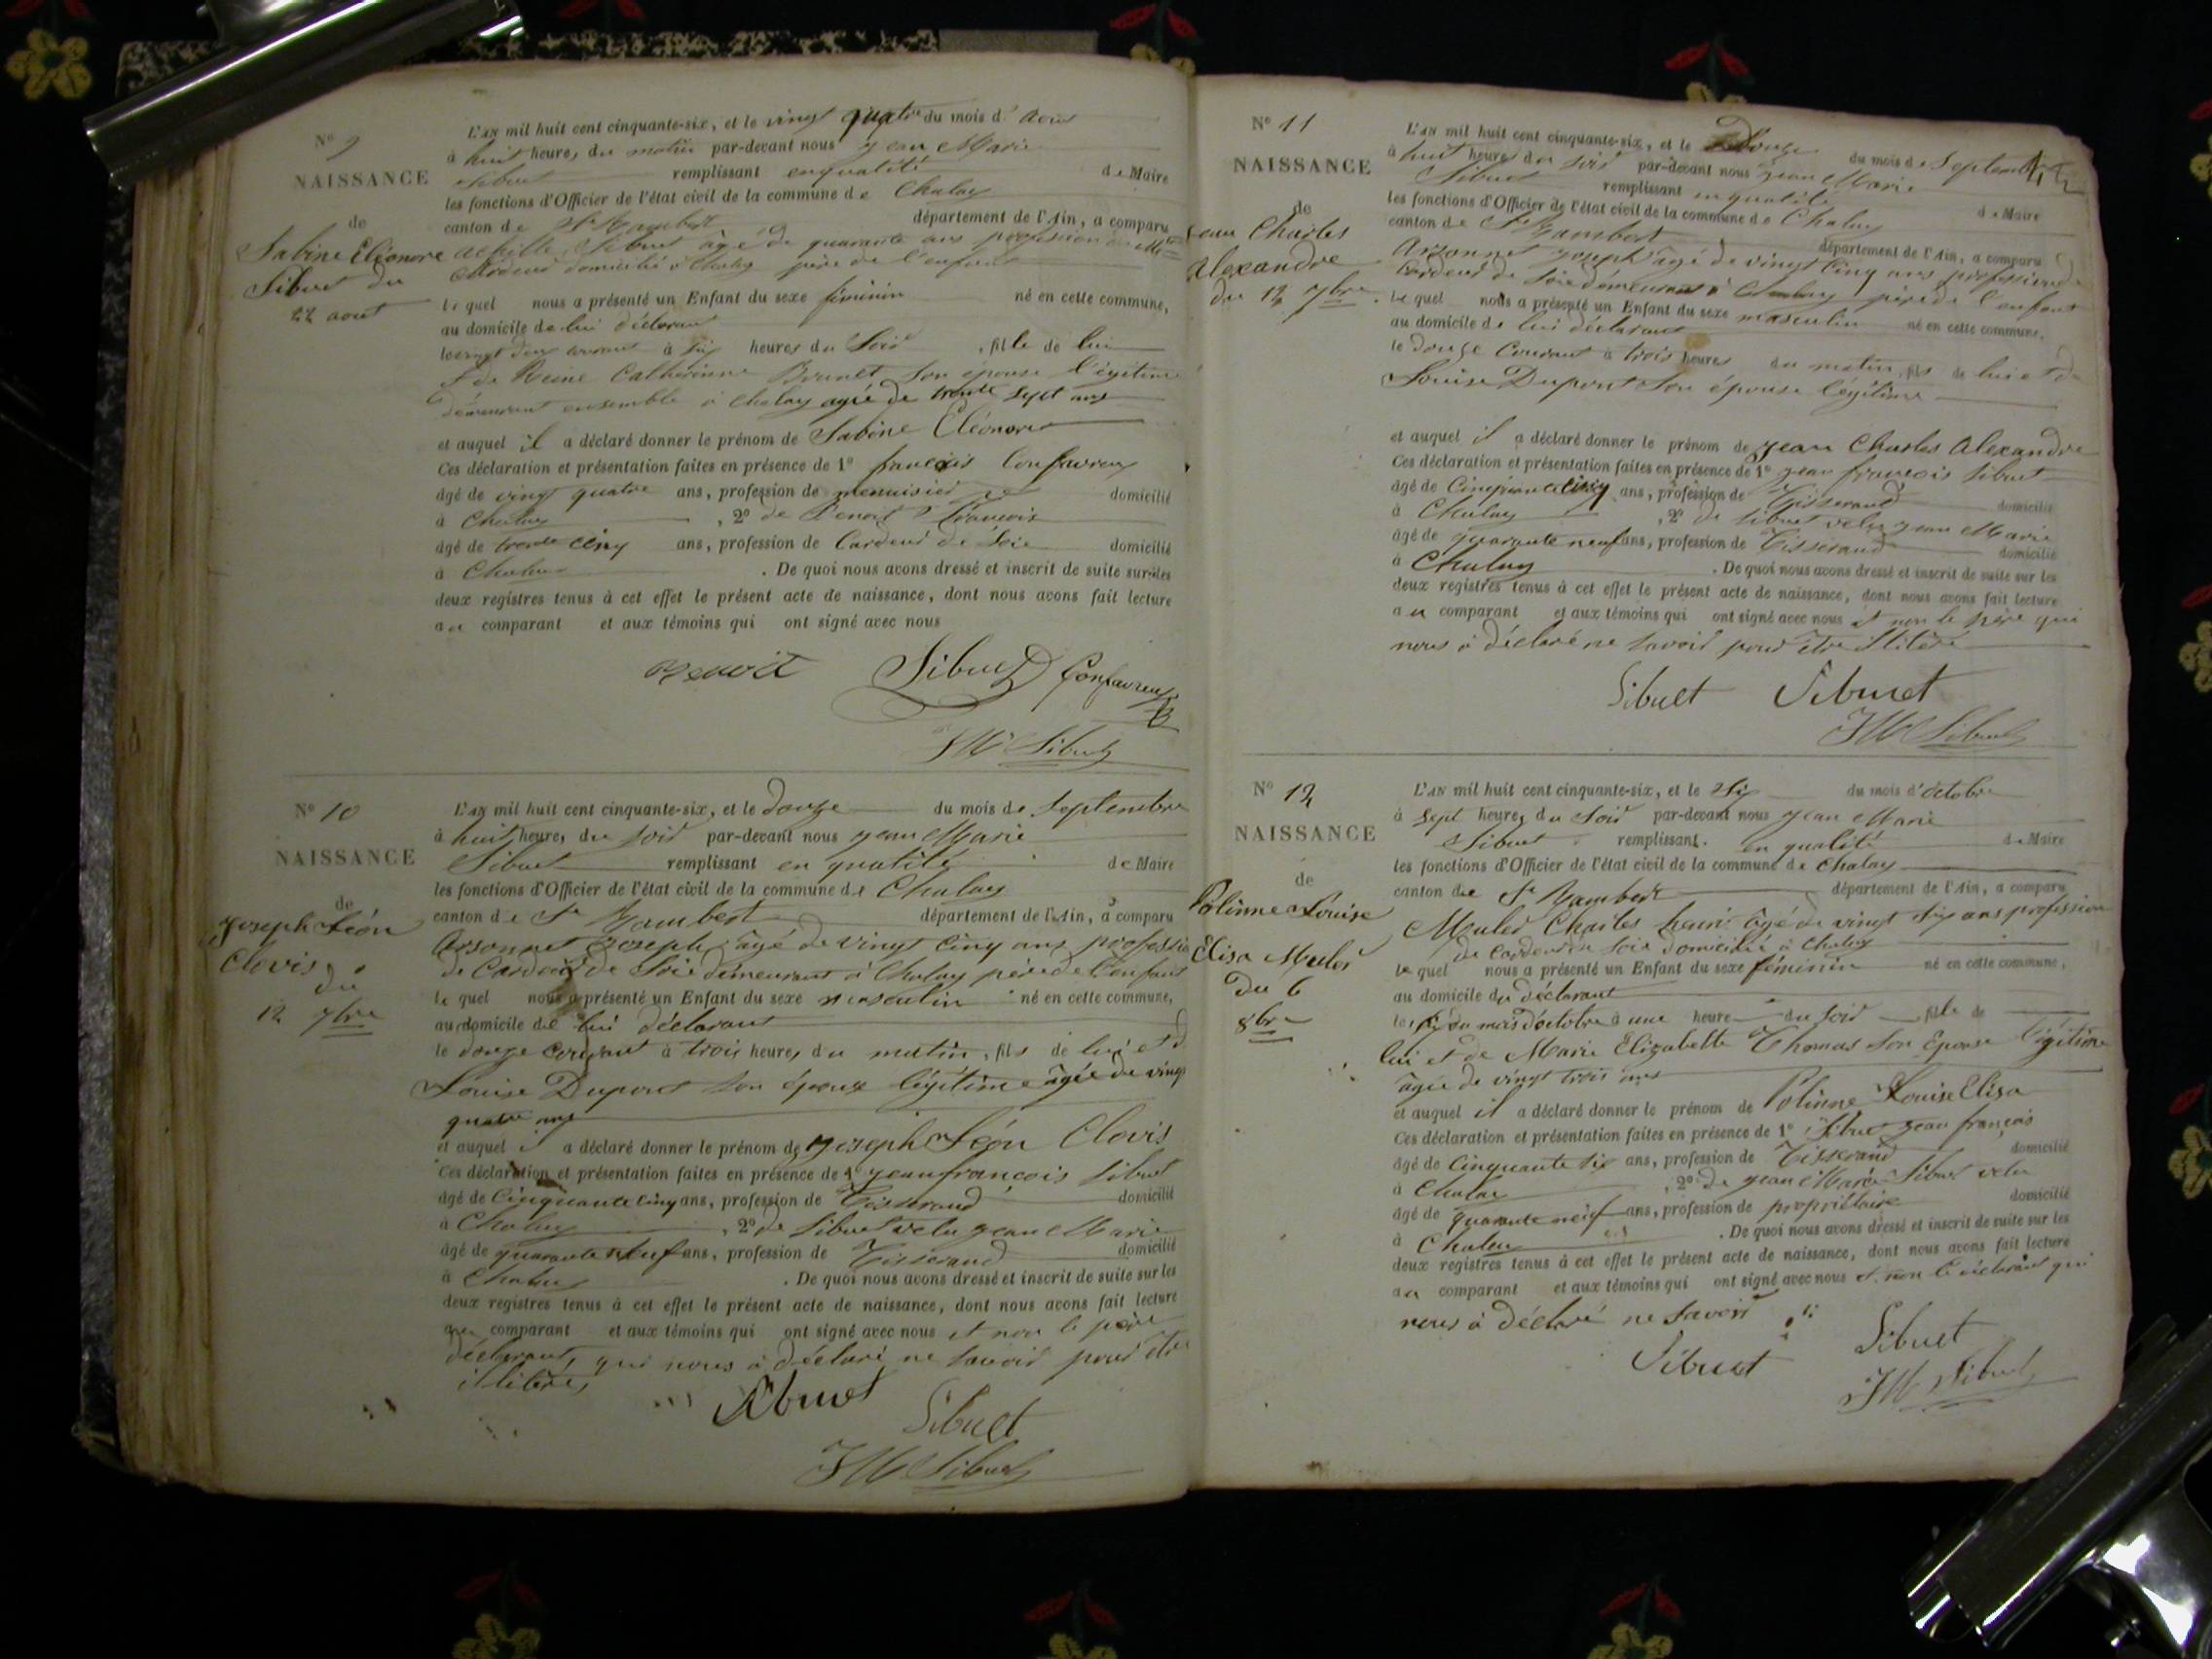 N° 9
NAISSANCE
de
Sabine Eléonore
Sibuet du
22 aout
L'AN mil huit cent cinquante-six, et le vingt quatre du mois d' Aout
à huit heures du matin par-devant nous Jean Marie
Sibuet remplissant en qualité de Maire
les fonctions d'Officier de l'état civil de la commune de Chaley
canton de St Rambert département de l'Ain, a comparu
achille Sibuet âgé de quarante ans profession de
domicilié à Chaley père de l'enfant
lequel nous a présenté un Enfant du sexe féminin né en cette commune,
au domicile de lui déclarant
le vingt deux courant à six heures du Soir, fille de lui
& de Reine Catherinne Brunet son épouse légitime
demeurant ensemble à Chaley agée de trente sept ans
et auquel il a déclaré donner le prénom de Sabine Eléonore
Ces déclaration et présentation faites en présence de 1° françois Confavreux
âgé de vingt quatre ans, profession de menuisier domicilié
à Chaley, 2° de Benoit François
âgé de trente cinq ans, profession de Cardeur de Soie domicilié
à Chaley. De quoi nous avons dressé et inscrit de suite sur les
deux registres tenus à cet effet le présent acte de naissance, dont nous avons fait lecture
au comparant et aux témoins qui ont signé avec nous
Benoit Sibuet Confavreux
JM Sibuet
N° 10
NAISSANCE
de
Joseph Léon
Clovis
du
12 7bre
L'AN mil huit cent cinquante-six, et le douze du mois de Septembre
à huit heures du soir par-devant nous Jean Marie
Sibuet remplissant en qualité de Maire
les fonctions d'Officier de l'état civil de la commune de Chaley
canton de St Rambert département de l'Ain, a comparu
Arsonnet Joseph âgé de vingt cinq ans profession
de Cardeur de Soie demeurant à Chaley père de l'enfant
lequel nous a présenté un Enfant du sexe masculin né en cette commune,
au domicile de lui déclarant
le douze courant à trois heures du matin, fils de lui et d
Louise Dupont son épouse légitime âgée de vingt
quatre ans
et auquel il a déclaré donner le prénom de Joseph Léon Clovis
Ces déclaration et présentation faites en présence de 1° Jean françois Sibuet
âgé de Cinquante cinq ans, profession de Tisserand domicilié
à Chaley, 2° de Sibuet velu Jean Marie
âgé de quarante neuf ans, profession de Tisserand domicilié
à Chaley. De quoi nous avons dressé et inscrit de suite sur les
deux registres tenus à cet effet le présent acte de naissance, dont nous avons fait lecture
au comparant et aux témoins qui ont signé avec nous et non le père
déclarant, qui nous à déclaré ne savoir pour être
illitéré
Sibuet Sibuet
JM Sibuet
N° 11
NAISSANCE
de
Jean Charles
Alexandre
du 12 7bre
L'AN mil huit cent cinquante-six, et le Douze du mois de Septembre
à huit heures du soir par-devant nous Jean Marie
Sibuet remplissant en qualité de Maire
les fonctions d'Officier de l'état civil de la commune de Chaley
canton de St Rambert département de l'Ain, a comparu
Arsonnet Joseph âgé de vingt cinq ans profession de
Cardeur de Soie demeurant à Chaley père de l'enfant
lequel nous a présenté un Enfant du sexe masculin né en cette commune,
au domicile de lui déclarant
le douze Courant à trois heures du matin, fils de lui et de
Louise Dupont son épouse légitime
et auquel il a déclaré donner le prénom de Jean Charles Alexandre
Ces déclaration et présentation faites en présence de 1° Jean françois Sibuet
âgé de Cinquante cinq ans, profession de Tisserand domicilié
à Chaley, 2° de Sibuet velu Jean Marie
âgé de quarante neuf ans, profession de Tisserand domicilié
à Chaley. De quoi nous avons dressé et inscrit de suite sur les
deux registres tenus à cet effet le présent acte de naissance, dont nous avons fait lecture
au comparant et aux témoins qui ont signé avec nous et non le père qui
nous à déclaré ne savoir pour être illitéré
Sibuet Sibuet
JM Sibuet
N° 12
NAISSANCE
de
Polinne Louise
Elisa Muler
du 6
8bre
L'AN mil huit cent cinquante-six, et le Six du mois d'octobre
à Sept heures du Soir par-devant nous Jean Marie
Sibuet remplissant en qualité de Maire
les fonctions d'Officier de l'état civil de la commune de Chaley
canton de St Rambert département de l'Ain, a comparu
Muler Charles henri âgé de vingt six ans profession
de cardeur de soie domicilié à Chaley
lequel nous a présenté un Enfant du sexe féminin né en cette commune,
au domicile du déclarant
le six du mois d'octobre à une heure du soir fille de
lui et de Marie Elizabette Thomas son Epouse légitime
âgée de vingt trois ans
et auquel il a déclaré donner le prénom de Polinne Louise Elisa
Ces déclaration et présentation faites en présence de 1° Sibuet Jean françois
âgé de Cinquante six ans, profession de Tisserand domicilié
à Chaley, 2° de Jean Marie Sibuet velu
âgé de quarante neuf ans, profession de propriétaire domicilié
à Chaley. De quoi nous avons dressé et inscrit de suite sur les
deux registres tenus à cet effet le présent acte de naissance, dont nous avons fait lecture
au comparant et aux témoins qui ont signé avec nous et non le déclarant qui
nous à déclaré ne savoir
Sibuet Sibuet
JM Sibuet